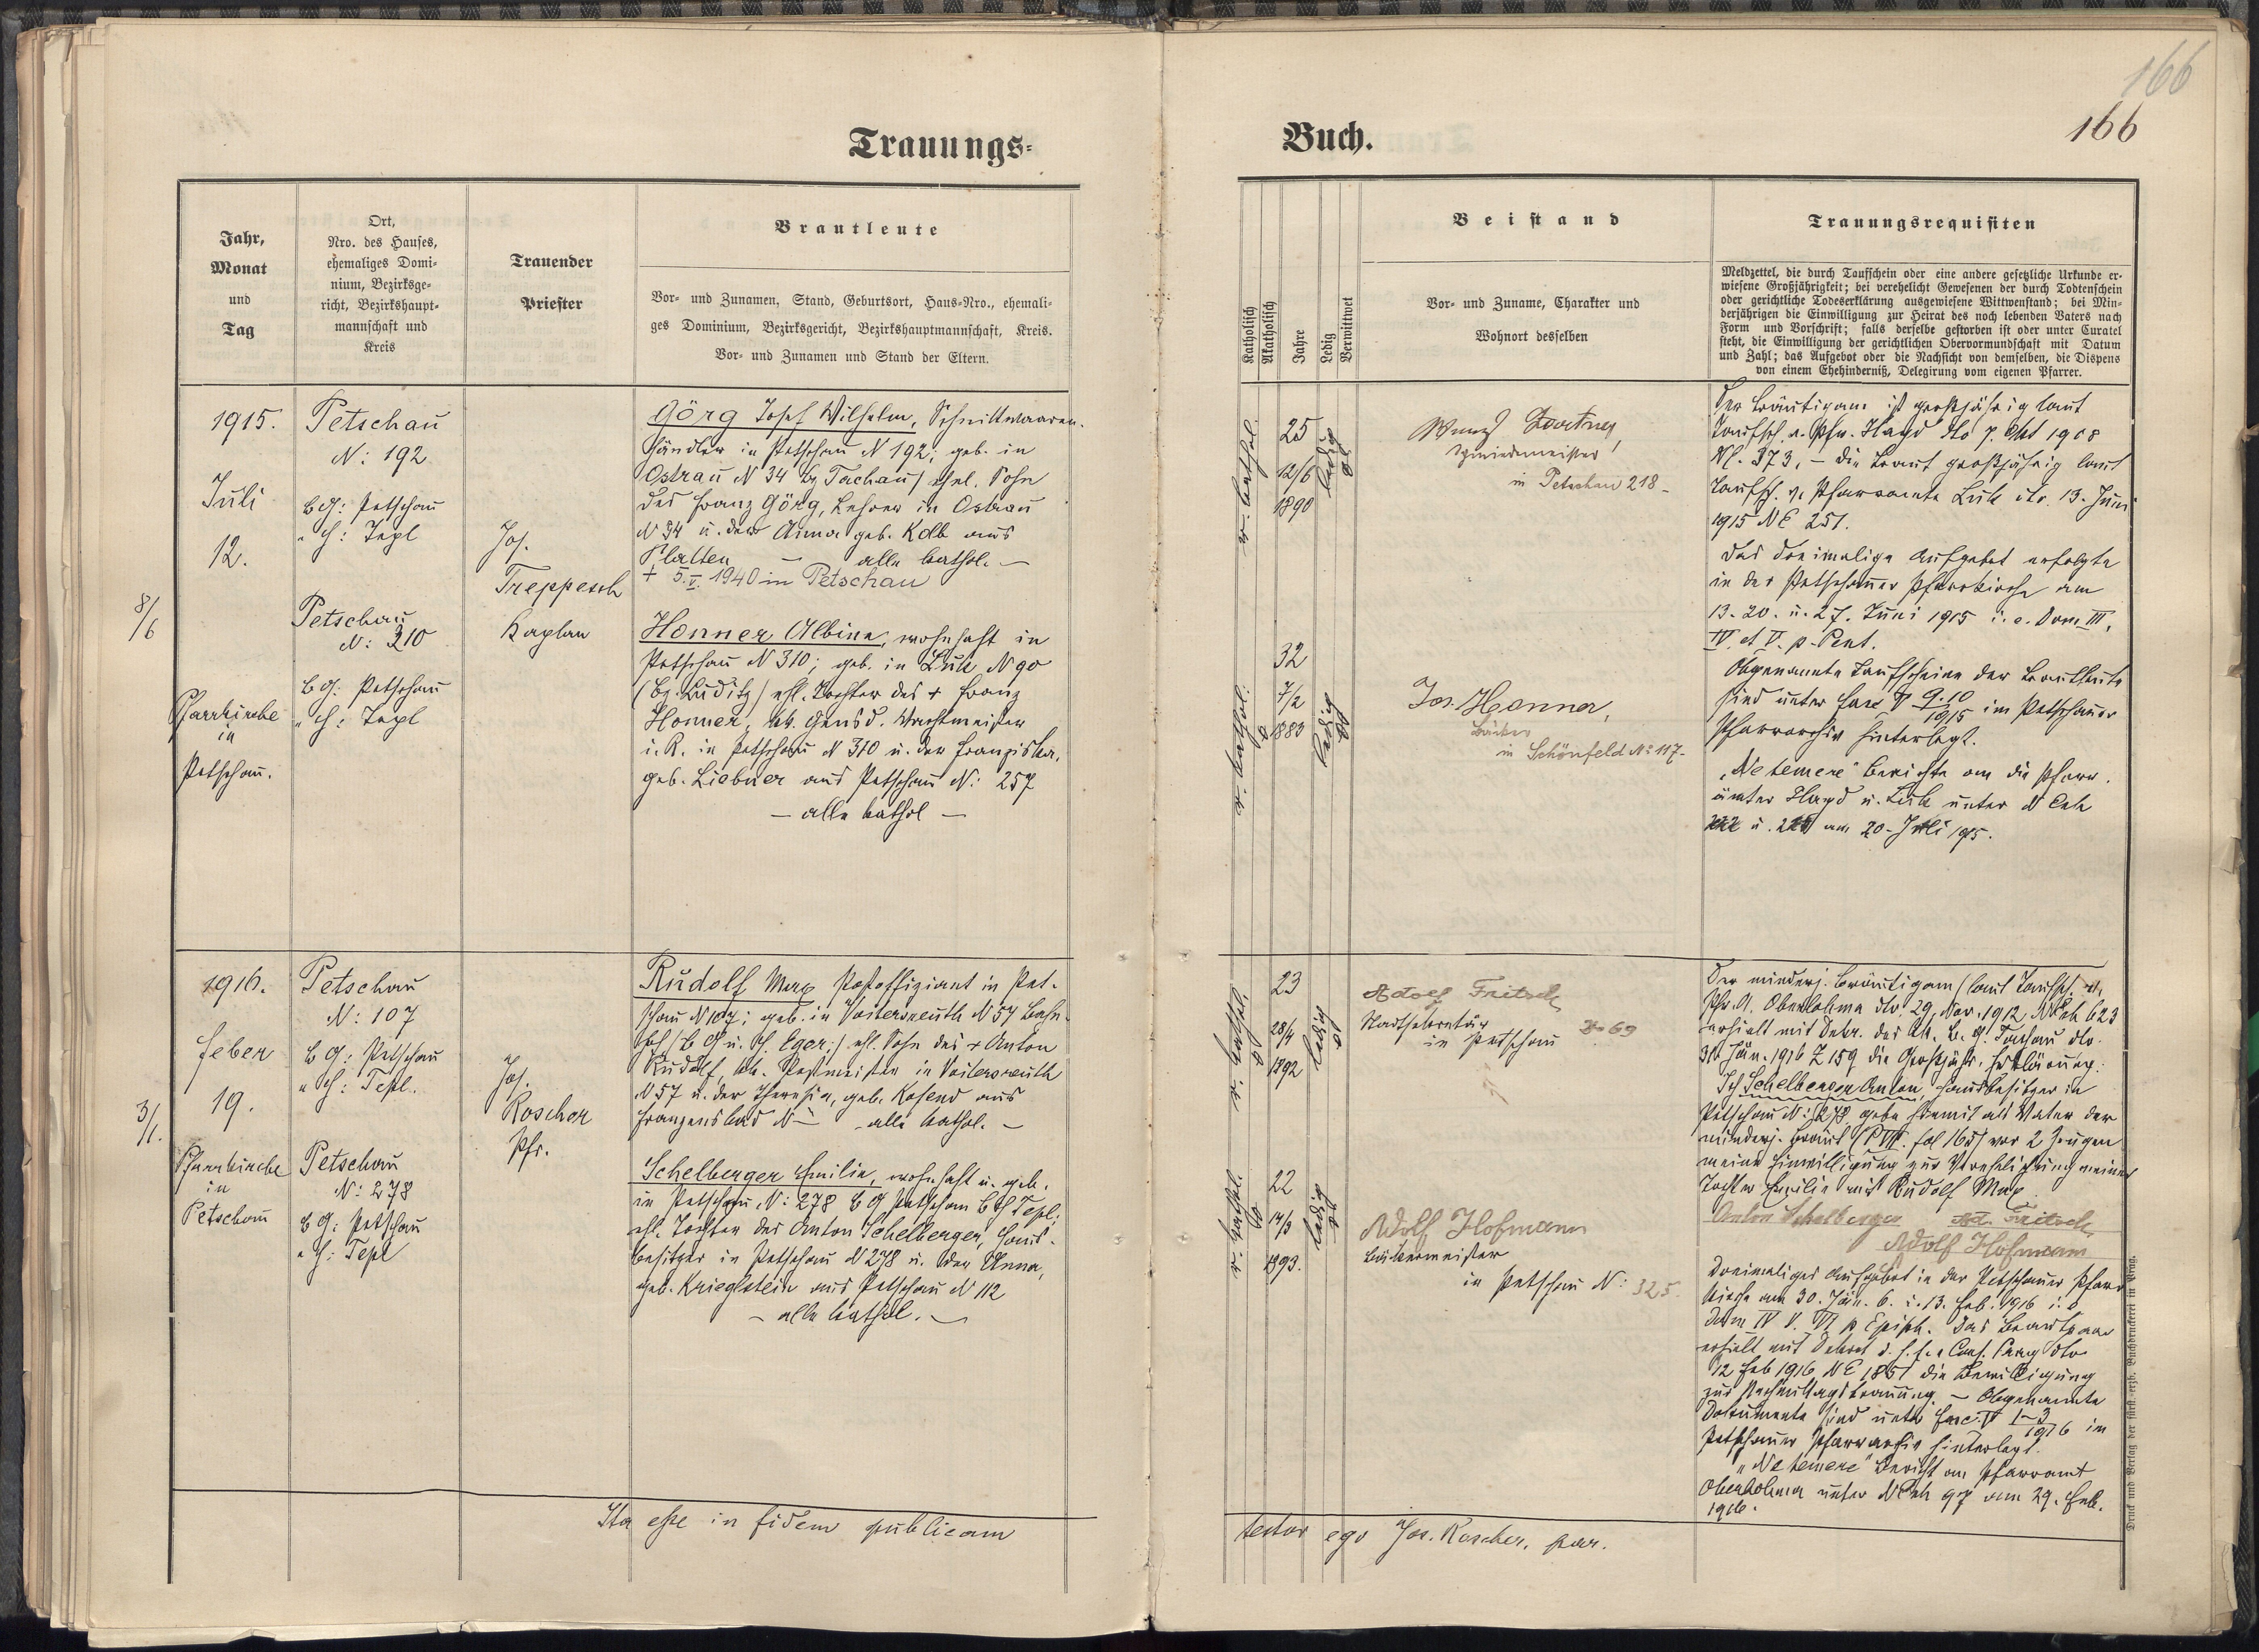 166
166
Trauungs-
Buch.
Jahr,
Monat
und
Tag
Ort,
Nro. des Hauses,
ehemaliges Domi-
nium, Bezirksge-
richt, Bezirkshaupt-
mannschaft und
Kreis
Trauender
Priester
Brautleute
Vor- und Zunamen, Stand, Geburtsort, Haus-Nro., ehemali-
ges Dominium, Bezirksgericht, Bezirkshauptmannschaft, Kreis.
Vor- und Zunamen und Stand der Eltern.
Katholisch
Akatholisch
Jahre
Ledig
Verwittwet
Beistand
Vor- und Zuname, Charakter und
Wohnort desselben
Trauungsrequisiten
Meldzettel, die durch Taufschein oder eine andere gesetzliche Urkunde er-
wiesene Großjährigkeit; bei verehelicht Gewesenen der durch Todtenschein
oder gerichtliche Todeserklärung ausgewiesene Wittwenstand; bei Min-
derjährigen die Einwilligung zur Heirat des noch lebenden Vaters nach
Form und Vorschrift; falls derselbe gestorben ist oder unter Curatel
steht, die Einwilligung der gerichtlichen Obervormundschaft mit Datum
und Zahl; das Aufgebot oder die Nachsicht von demselben, die Dispens
von einem Ehehinderniß, Delegirung vom eigenen Pfarrer.
1915.
Juli
12.
8/6
Pfarrkirche
in
Petschau.
Petschau
N: 192
BG: Petschau
" H: Tepl
Petschau
N: 310
BG: Petschau
" H: Tepl
Jos.
Treppesch
Kaplan
Görg Josef Wilhelm, Schnittwaaren-
händler in Petschau N 192; geb. in
Ostrau N 34 Bz Tachau) ehel. Sohn
des Franz Görg, Lehrer in Ostrau
N 34 u. der Anna geb. Kolb aus
Platten — alle kathol. —
+ 5.V.1940 in Petschau
Honner Albine, wohnhaft in
Petschau N 310; geb. in Luk N 90
(Bz. Luditz) ehl. Tochter des + Franz
Honner, kk. Gensd. Wachtmeister
i. R. in Petschau N 310 u. der Franziska,
geb. Liebner aus Petschau N: 257
— alle kathol —
r. kathol.
25
12/6
1890
ledig
32
7/2
1883
r. kathol.
ledig
in Petschau 218 -
Jos. Honner,
Bäcker
in Schönfeld No 117-
Der Bräutigam ist großjährig laut
Taufsch. v. Pfr. Hayd dto 7. Okt 1908
Nl. 373, – die Braut großjährig laut
Taufsch. v. Pfarramte Luk dto. 13. Juni
1915 NE 251.
Das dreimalige Aufgebot erfolgte
in der Petschauer Pfarrkirche am
13. 20. u. 27. Juni 1915 i. e. Dom III,
IV. et V. p. Pent.
Obgenannte Taufscheine der Brautleute
sind unter Fasc. V 9.10/1915 im Petschauer
Pfarrarchiv hinterlegt.
"Ne temere" Berichte an die Pfarr-
ämter Hayd u. Luk unter N Exh
am 20. Juli 1915.
1916.
Feber
19.
3/1.
Pfarrkirche
in
Petschau
Petschau
N: 107
BG: Petschau
" H: Tepl.
Petschau
N: 278
BG: Petschau
" H: Tepl
Jos.
Roscher
Pfr.
Rudolf Max Postoffiziant in Pet-
schau N 107; geb. in Voitersreuth N 57 Bahn-
hof /: BG u. H. Eger:/ ehl. Sohn des + Anton
Rudolf, kk. Postmeister in Voitersreuth
N 57 u. der Theresia, geb. Kosend aus
Franzensbad N — alle kathol. –
Schelberger Emilie, wohnhaft u. geb.
in Petschau N: 278 BG Petschau BH Tepl;
ehl. Tochter des Anton Schelberger, Haus-
besitzer in Petschau N 278 u. der Anna,
geb. Krieglstein aus Petschau N 112
– alle kathol. –
r. kathol.
23
28/4
1892
ledig
r. kathol.
22
14/9
1893.
ledig
Adolf Fritsch
Stadtsekretär
in Petschau No 69
Adolf Hofmann
Bäckermeister
in Petschau N: 325.
Der minderj. Bräutigam (laut Taufsch. v.
Pfr. A. Oberlohma dto. 29. Nov. 1912 N Exh 623
erhielt mit Dekr. des kk. B. G. Tachau dto.
31. Jän. 1916 Z 159 die Großjähr. Erklärung.
Ich Schelberger Anton, Hausbesitzer in
Petschau N: 278 gebe hiemit als Vater der
minderj. Braut (P VII. fol 165) vor 2 Zeugen
meine Einwilligung zur Verehelichung meiner
Tochter Emilie mit Rudolf Max.
Anton Schelberger Ad. Fritsch
Adolf Hofmann
Dreimaliges Aufgebot in der Petschauer Pfarr-
kirche am 30. Jän. 6. u. 13. Feb. 1916 i. e.
Dom IV V. VI p Epiph. Das Brautpaar
erhielt mit Dekret d. f. e. Cons. Prag dto
12 Feb 1916 NE 1851 die Bewilligung
zur Nachmittagstrauung. – Obgenannte
Dokumente sind unter Fasc. V 1-3/1916 im
Petschauer Pfarrarchiv hinterlegt.
"Ne temere" Bericht an Pfarramt
Oberlohma unter N Exh 97 vom 29. Feb.
1916.
Ita esse in fidem publicam
testor ego Jos. Roscher, par.
Druck und Verlag der fürst-erzb. Buchdruckerei in Prag.